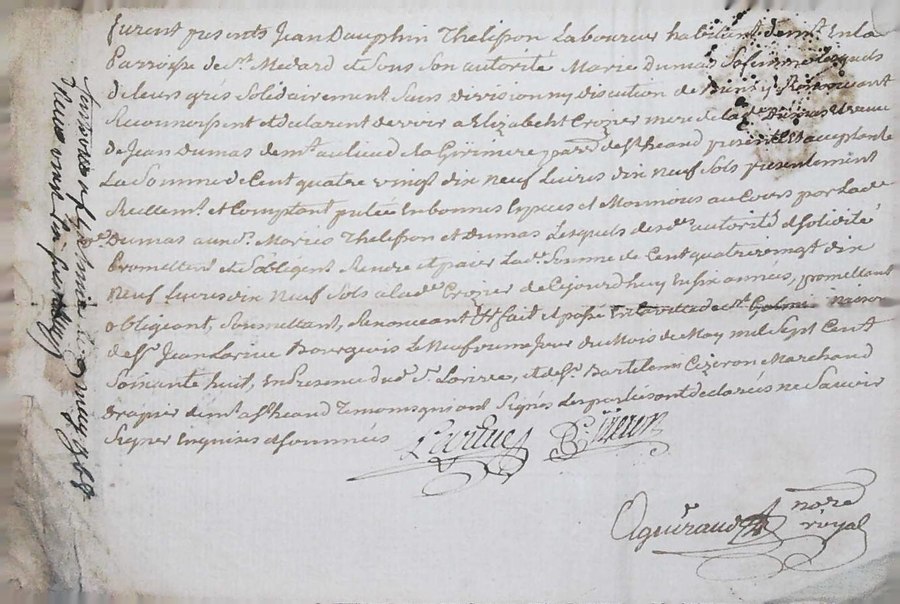 furent presents Jean Dauphin Thelisson Laboureur habitant demt. En la
Parroisse de St. Medard et Sous Son autorité Marie Dumas Sa femme lesquels
de leurs grés Solidairement Sans division ny discution de biens y Renonceant
Reconnoissent et declarent devoir a Elizabeth Crozier mere de lade. Dumas veuve
de Jean Dumas demte. au lieu de la parrsse de St heand presente et acceptante
La Somme de Cent quatre vingt dix Neuf Livres dix neuf Sols presentement
Reellemt. et Comptant pretée En bonnes Especes et Monnoies au Cours par Lade.
Dumas auxds. Mariés Thelisson et Dumas Lesquels desdes. autorité et Solidité
Promettent et S'obligent Rendre et paier Lade. Somme de Cent quatre vingt dix
Neuf Livres dix Neuf Sols a lade. Crozier de Cejourdhuy En Six années, promettant
obligeant, Soumettant, Renonceant &c fait et passé En la ville de St. Galmier maison
de Sr. Jean Larive Bourgeois Le Neufvieme Jour du Mois de May mil Sept Cent
Soixante huit, En Presence dud. Sr. Larive, et de Sr. Bartelemi Cizeron Marchand
drapier demt. a St heand Temoins qui ont Signés Les parties ont declarées ne Savoir
Signer Enquises et Sommées
Larive B. Cizeron
Aguiraud nore
royal
1768